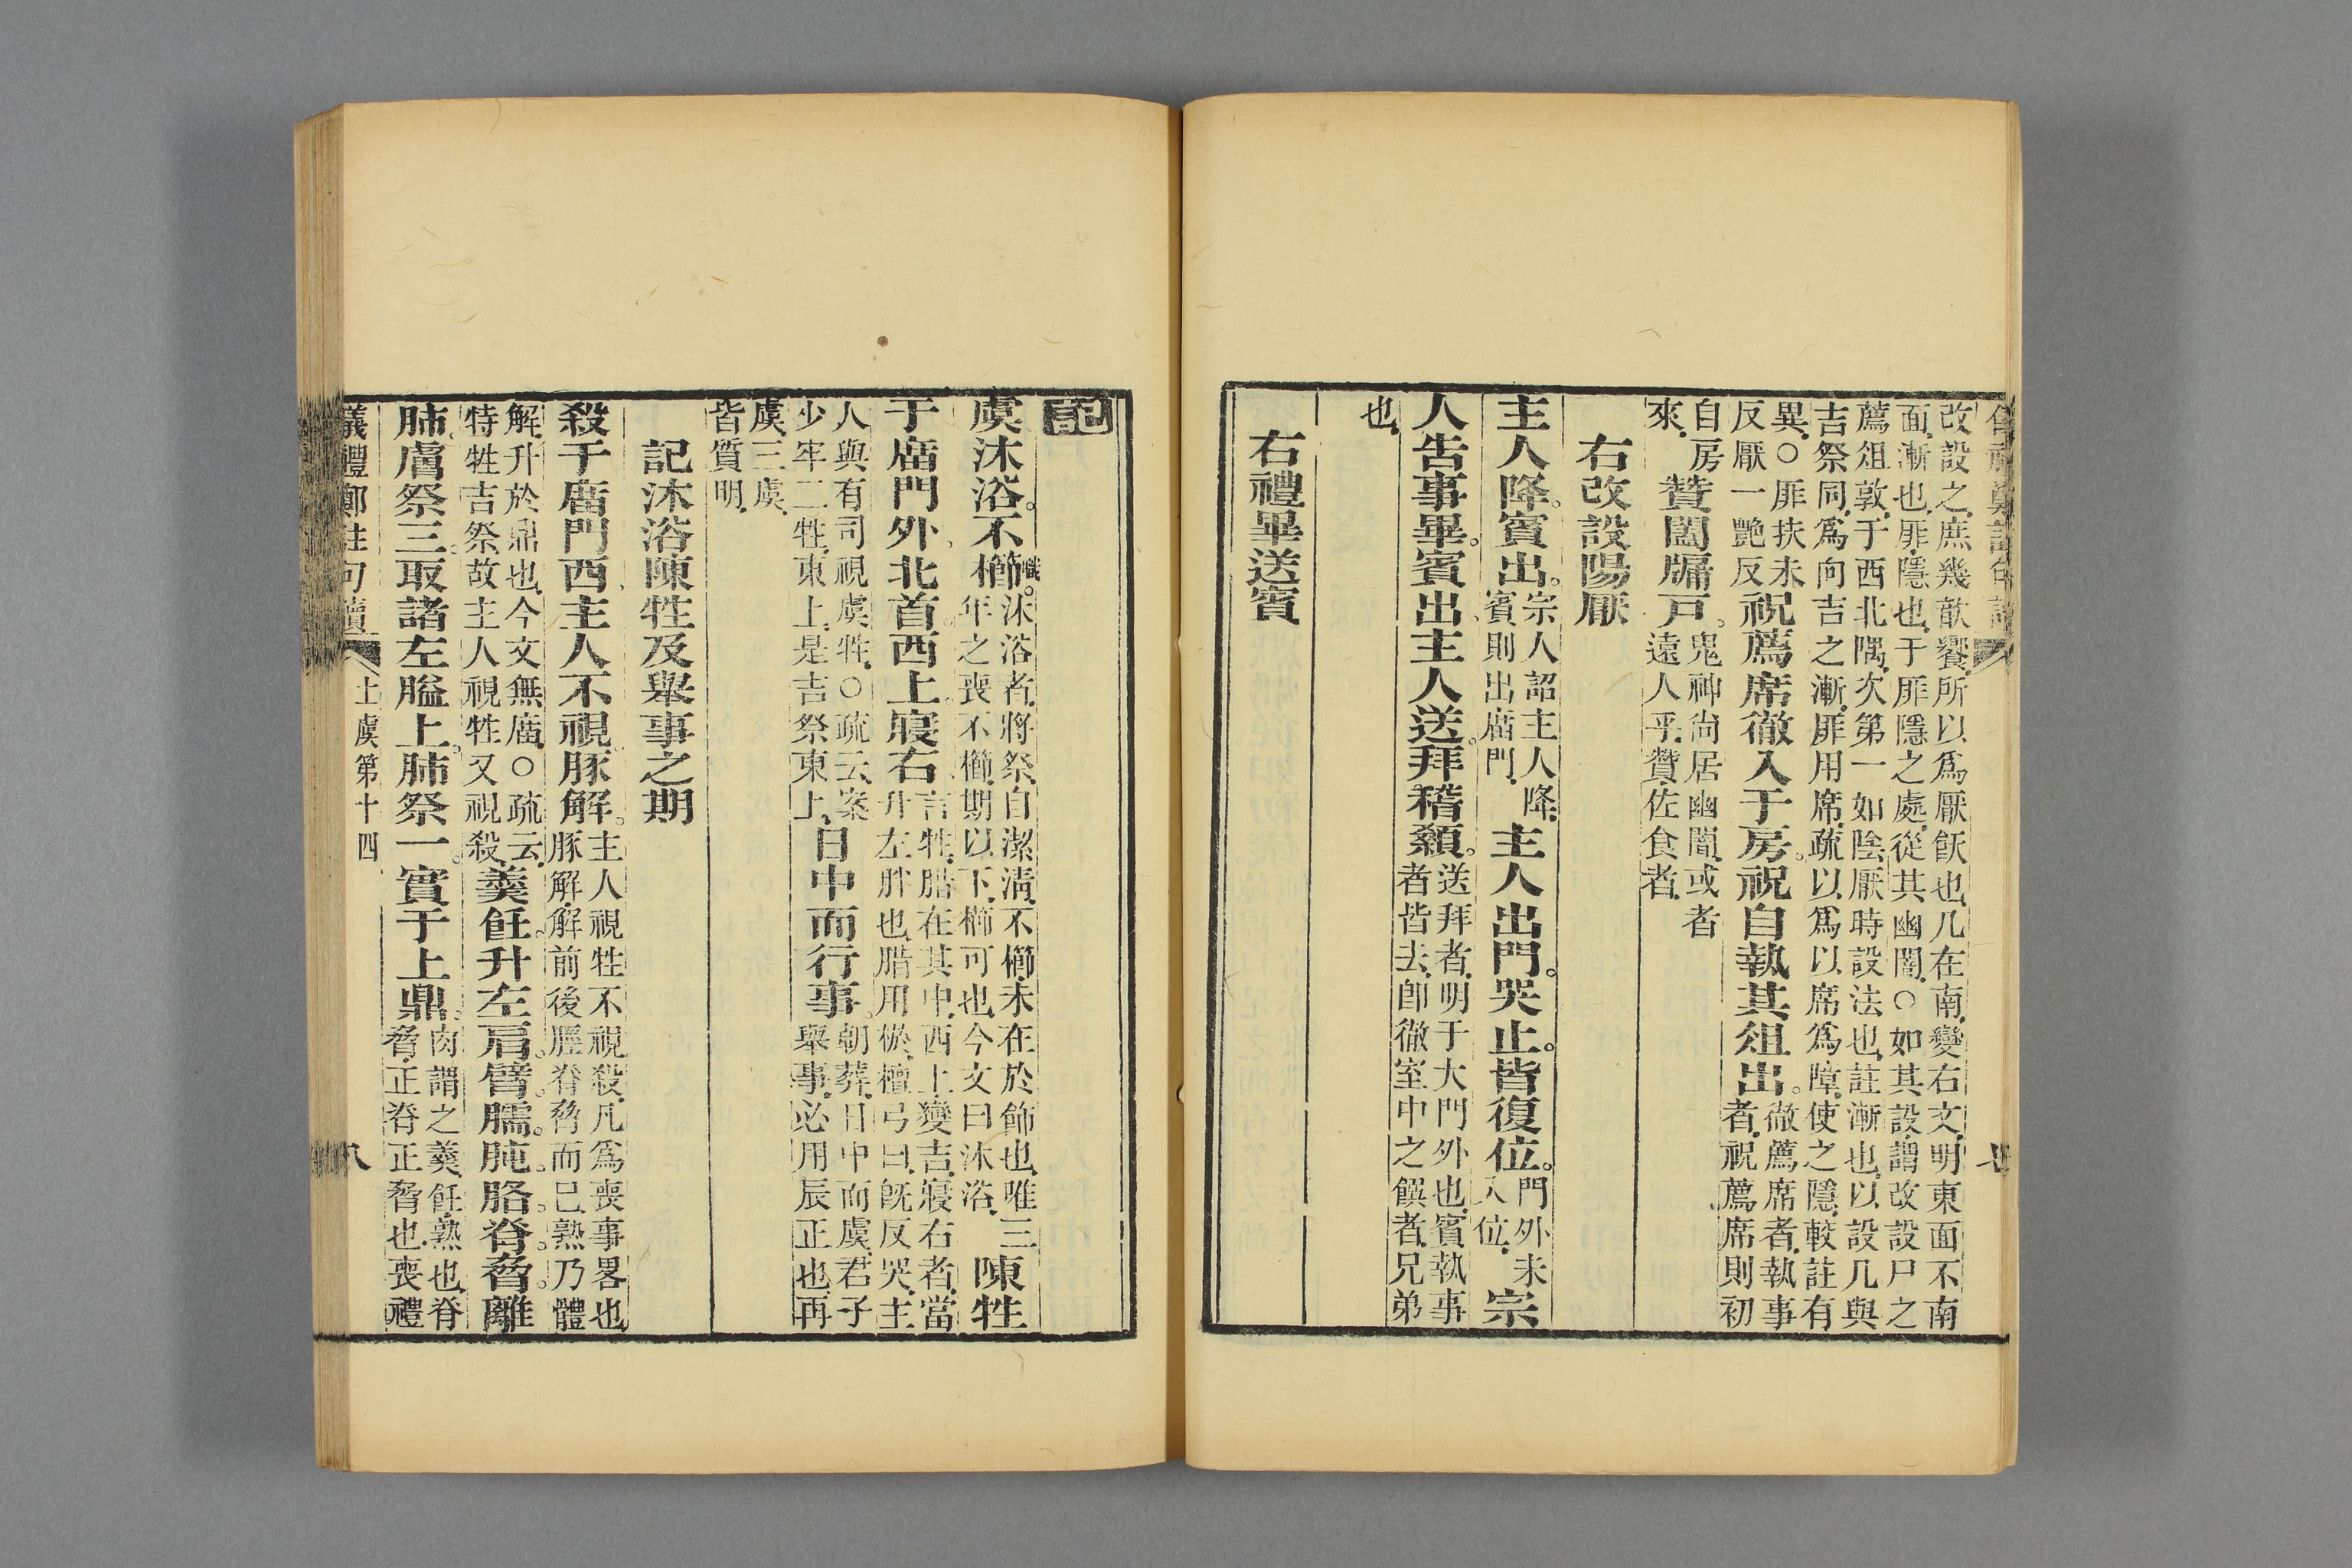 改設之庶幾歆饗所以爲厭飫也几在南變右文明東面不南
面漸也厞隱也于厞隱之處從其幽闇○如其設謂改設尸之
薦俎敦于西北隅次第一如陰厭時設法也註漸也以設几與
吉祭同爲向吉之漸厞用席疏以爲以席爲障使之隱較註有
異○厞扶未反厭一艷反祝薦席徹入于房祝自執其俎出徹薦席者執事者祝薦席則初
自房來贊闔牖戶鬼神尚居幽闇或者遠人乎贊佐食者
右改設陽厭
主人降賓出宗人詔主人降賓則出廟門主人出門哭止皆復位門外未入位宗
人告事畢賓出主人送拜稽顙送拜者明于大門外也賓執事者皆去卽徹室中之饌者兄弟
也
右禮畢送賓
記
虞沐浴不櫛沐浴者將祭自潔淸不櫛未在於飾也唯三年之喪不櫛期以下櫛可也今文曰沐浴陳牲
于廟門外北首西上寢右言牲腊在其中西上變吉寢右者當升左胖也腊用棜檀弓曰旣反哭主
人與有司視虞牲○疏云案少牢二牲東上是吉祭東上日中而行事朝葬日中而虞君子舉事必用辰正也再
虞三虞皆質明
記沐浴陳牲及舉事之期
殺于廟門西主人不視豚解主人視牲不視殺凡爲喪事畧也豚解解前後脛脊脅而已熟乃體
解升於鼎也今文無廟○疏云特牲吉祭故主人視牲又視殺羹飪升左肩臂臑肫胳脊脅離
肺膚祭三取諸左膉上肺祭一實于上鼎肉謂之羹飪熟也脊脅正脊正脅也喪禮
儀禮鄭註句讀 士虞第十四 八